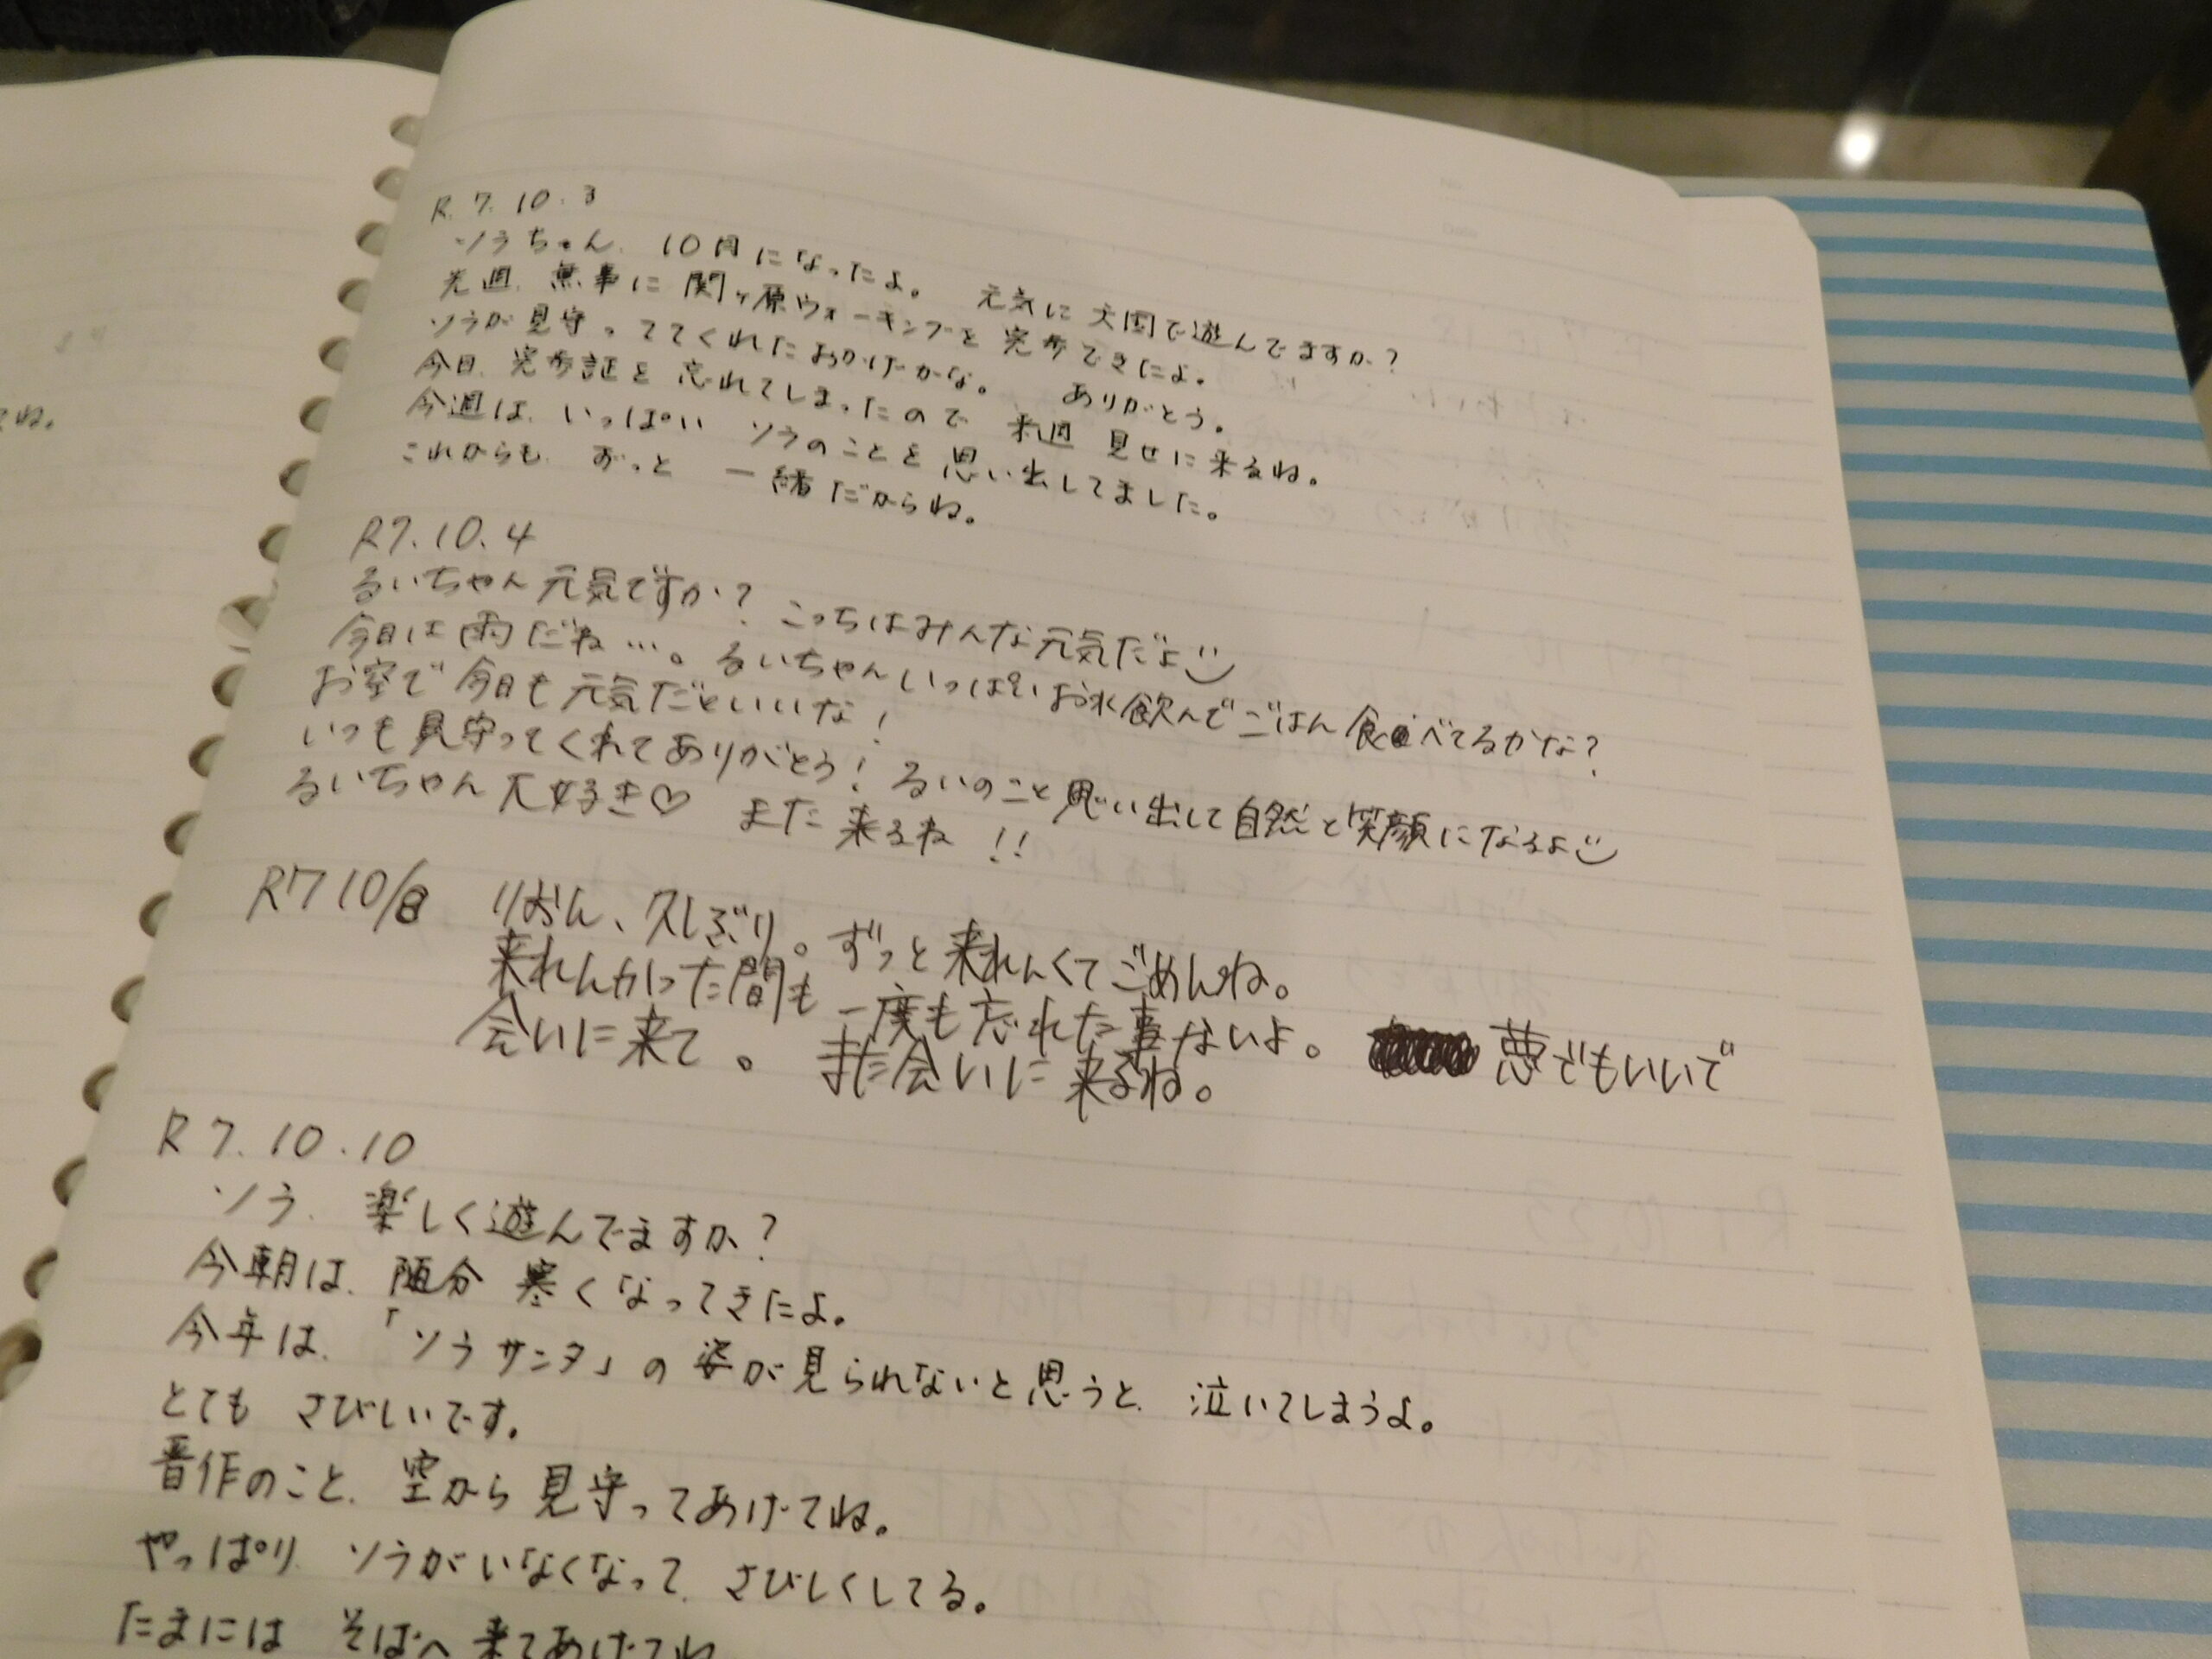 てね。
R.7.10.3
ソラちゃん、10月になったよ。 元気に天国で遊んでますか?
先週、無事に関ヶ原ウォーキングを完歩できたよ。
ソラが見守っててくれたおかげかな。 ありがとう。
今日、完歩証を忘れてしまったので来週見せに来るね。
今週は、いっぱいソラのことを思い出してました。
これからも、ずっと一緒だからね。
R7.10.4
るいちゃん元気ですか? こっちはみんな元気だよ
今日は雨だね…。るいちゃんいっぱいお水飲んでごはん食べてるかな?
お空で今日も元気だといいな!
いつも見守ってくれてありがとう! るいのこと思い出して自然と笑顔になるよ
るいちゃん大好き♡ また来るね!!
R7 10/日 りおん、久しぶり。ずっと来れんくてごめんね。
来れんかった間も一度も忘れた事ないよ。 夢でもいいで
会いに来て。 また会いに来るね。
R7.10.10
ソラ、楽しく遊んでますか?
今朝は、随分寒くなってきたよ。
今年は、「ソラサンタ」の姿が見られないと思うと、泣いてしまうよ。
とても さびしいです。
晋作のこと、空から見守ってあげてね。
やっぱり、ソラがいなくなって、さびしくしてる。
たまには そばへ来てあげてね